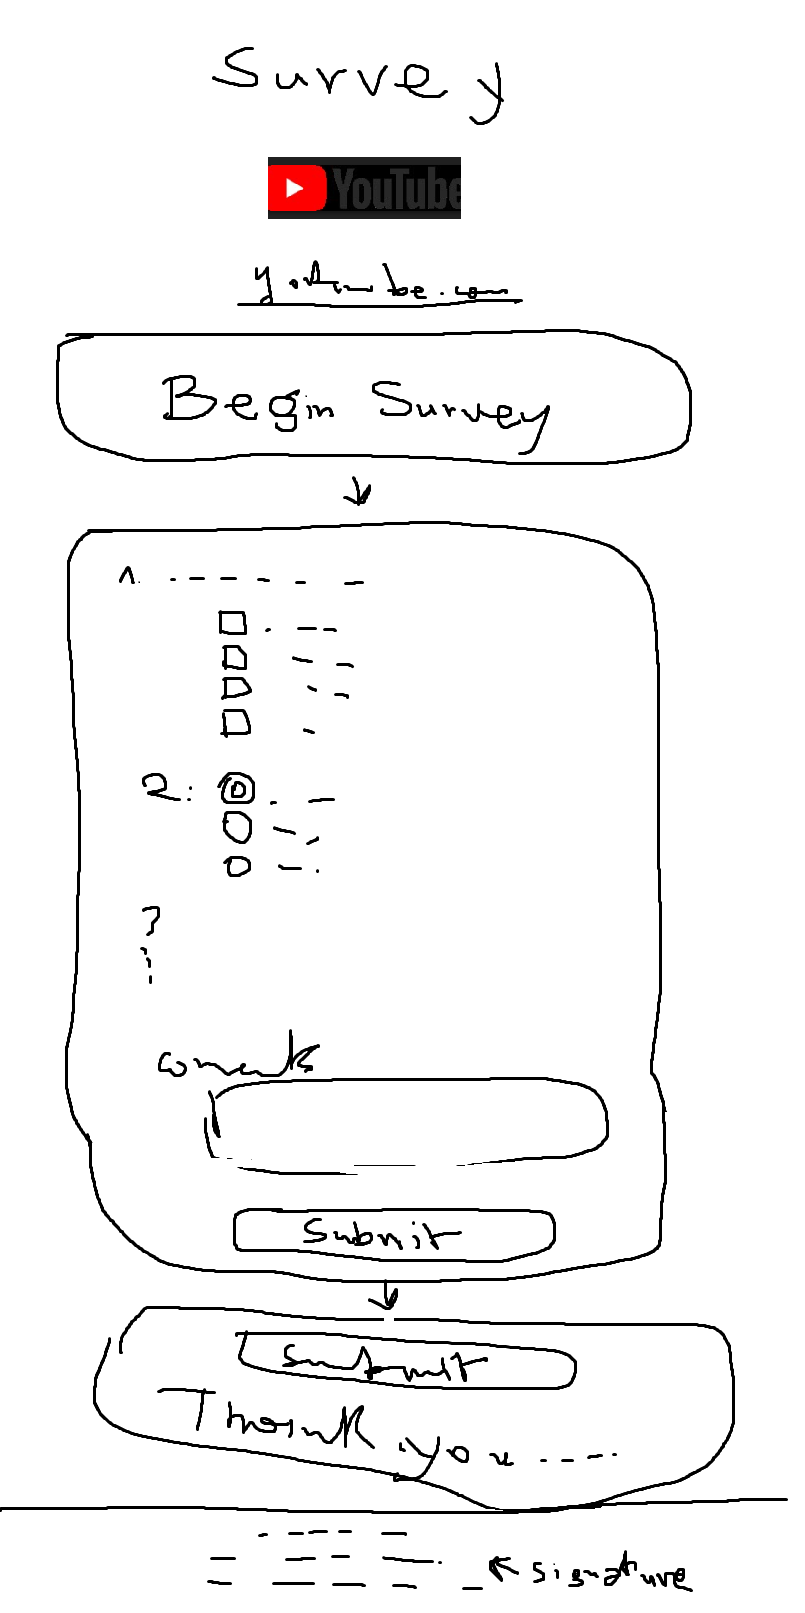 Survey
YouTube
youtube.com
Begin Survey
1.
2:
?
comments
Submit
Submit
Thank you ----.
signature